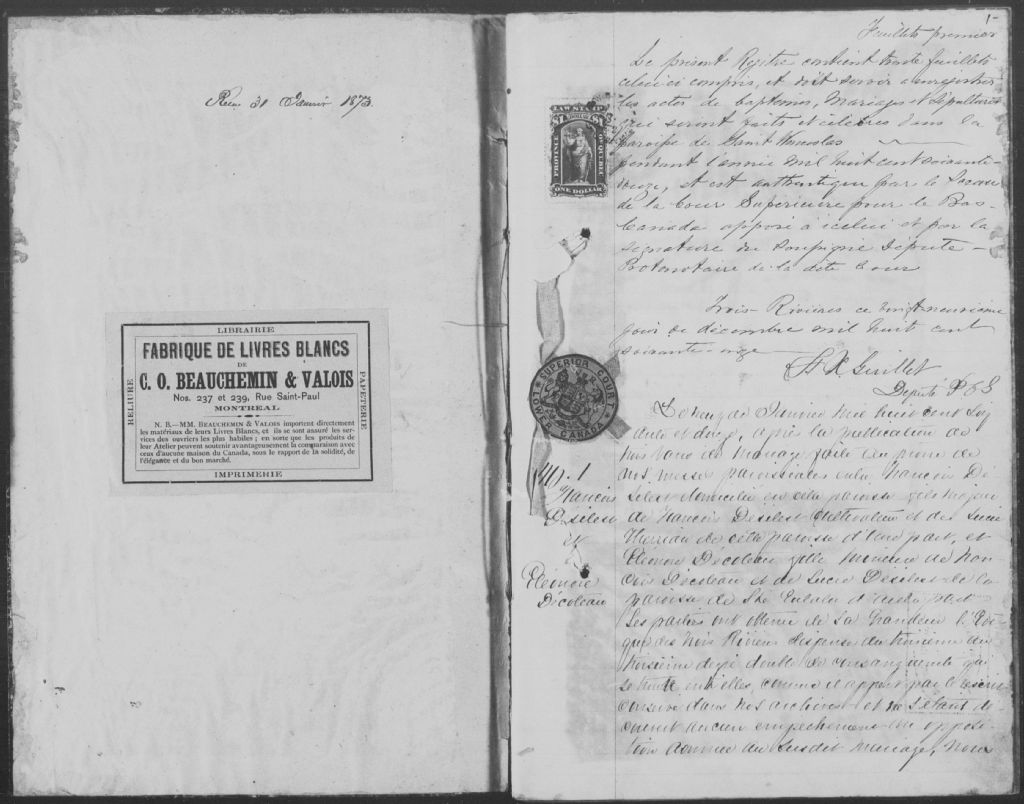 Recu 31 Janvier 1873.
LIBRAIRIE
FABRIQUE DE LIVRES BLANCS
DE
C. O. BEAUCHEMIN & VALOIS
Nos. 237 et 239, Rue Saint-Paul
MONTREAL
N. B.—MM. BEAUCHEMIN & VALOIS importent directement
les matériaux de leurs Livres Blancs, et ils se sont assuré les ser-
vices des ouvriers les plus habiles ; en sorte que les produits de
leur Atelier peuvent soutenir avantageusement la comparaison avec
ceux d'aucune maison du Canada, sous le rapport de la solidité, de
l'élégance et du bon marché.
IMPRIMERIE
RELIURE
PAPETERIE
1-
Feuillet premier
Le présent Registre contient trente feuillets
celui ci compris, et doit servir a enregistrer
les actes de baptemes, Mariages et Sépultures
qui seront faits et célébrés dans la
paroisse de Saint Wenceslas
pendant l'année mil huit cent soixante-
douze, et est authentiqué par le Sceau
de la Cour Supérieure pour le Bas-
Canada apposé à icelui et par la
signature du soussigné Député-
Protonotaire de la dite Cour
Trois-Rivières ce vingt neuvième
jour de décembre mil huit cent
soixante-onze
Guillet
Député P C S
LAW STAMP
$1 DOLLAR $1
PROVINCE OF QUEBEC
ONE DOLLAR
SUPERIOR COURT
LOWER CANADA
No. 1
Francois
Désilets
&
Eléonore
Décoteau
Le neuf de Janvier mil huit cent soix
ante et douze, après la publication de
trois bans de mariage faite au prone de
nos messes paroissiales entre Francois Dé
silets domicilié en cette paroisse fils majeur
de Francois Désilets Cultivateur et de Lucie
de cette paroisse d'une part, et
Eléonore Décoteau fille mineure de
Decoteau et de Lucie Désilets de la
paroisse de Ste Eulalie d'autre part
Les parties ont obtenu de Sa Grandeur l'Evê
que des Trois Rivières dispense du troisième au
troisième degré double de consanguinité qui
se trouve entre elles, comme il appert par le
conservé dans nos archives et ne s'étant dé
couvert aucun empêchement ou opposi
tion au susdit mariage, Nous